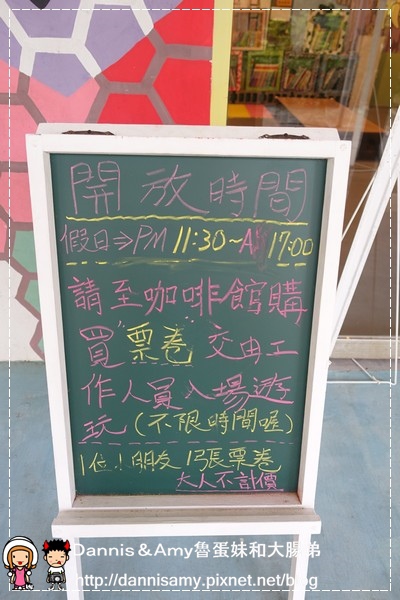 開放時間
假日⇒PM 11:30~A 17:00
請至咖啡館購
買"票卷"交由工
作人員入場遊
玩(不限時間喔)
1位小朋友 1張票卷
大人不計價
Dannis & Amy魯蛋妹和大腸弟
http://dannisamy.pixnet.net/blog